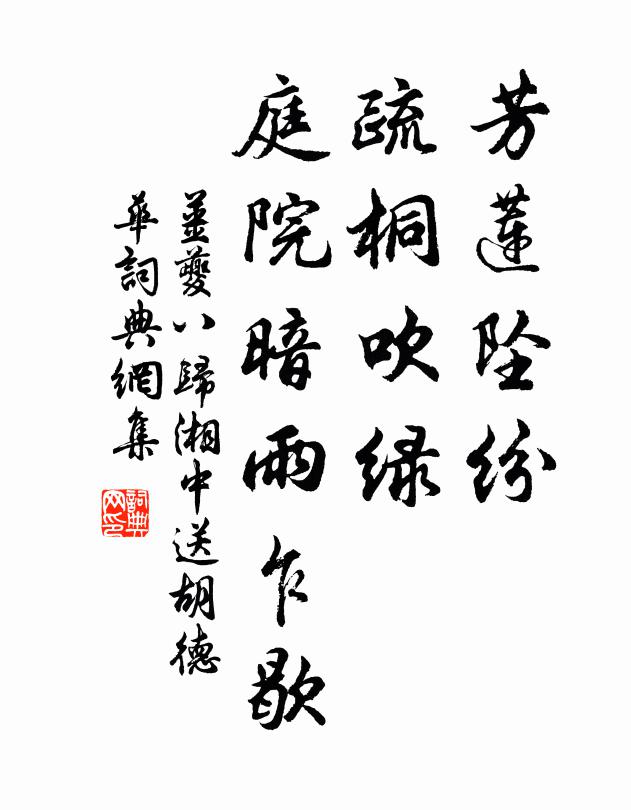 芳蓮墜紛
疏桐吹绿
庭院暗雨乍歇
姜夔八歸湘中送胡德
華詞典網集
詞典网印